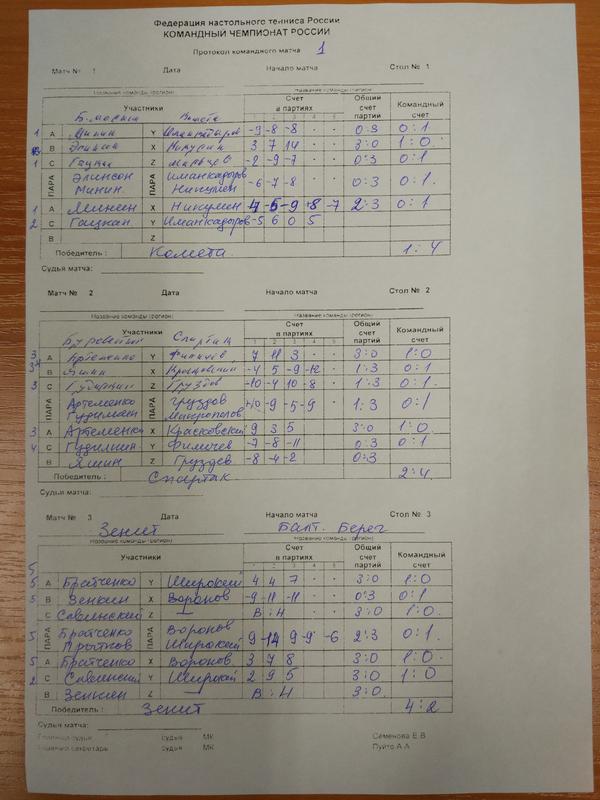 Федерация настольного тенниса России
КОМАНДНЫЙ ЧЕМПИОНАТ РОССИИ
Протокол командного матча 1
Матч № 1 Дата Начало матча Стол № 1
Название команды (регион) Название команды (регион)
Участники Счет в партиях Общий счет партий Командный счет
1 2 3 4 5
1 A Минин Y -3 -8 -8 0:3 0:1
B Элинсон X Никулин 3 7 14 3:0 1:0
1 C Гацкан Z -2 -9 -7 0:3 0:1
ПАРА Элинсон ПАРА Иманкадыров -6 -7 -8 0:3 0:1
Минин Никулин
1 A Минин X Никулин -5 -9 +8 -7 2:3 0:1
2 C Гацкан Y Иманкадыров -5 6 0 5
B Z
Победитель: Комета 1:4
Судья матча:
Матч № 2 Дата Начало матча Стол № 2
Название команды (регион) Название команды (регион)
Буревестник Спартак
Участники Счет в партиях Общий счет партий Командный счет
1 2 3 4 5
3 A Артеменко Y Фимичев 7 11 3 3:0 1:0
B Яшин X Красковский -4 5 -9 -12 1:3 0:1
3 C Z Груздов -10 -4 10 -8 1:3 0:1
ПАРА Артеменко ПАРА Груздов -9 -5 -9 1:3 0:1
3 A Артеменко X Красковский 9 3 5 3:0 1:0
4 C Y Фимичев -7 -8 -11 0:3 0:1
B Яшин Z Груздев -8 -4 -2 0:3
Победитель: Спартак 2:4
Судья матча:
Матч № 3 Дата Начало матча Стол № 3
Зенит Балт. Берег
Название команды (регион) Название команды (регион)
Участники Счет в партиях Общий счет партий Командный счет
1 2 3 4 5
5
5 A Братченко Y Широкий 4 4 7 3:0 1:0
5 B Зенкин X Воронов -9 -11 -11 0:3 0:1
C Савинский Z — В:Н 3:0 1:0
5 ПАРА Братченко ПАРА Воронов 9 9 -9 -6 2:3 0:1
Широкий
5 A Братченко X Воронов 3 7 8 3:0 1:0
2 C Савинский Y Широкий 2 9 5 3:0 1:0
B Зенкин Z — В:Н 3:0
Победитель: Зенит 4:2
Судья матча:
Главный судья судья МК Семенова Е.В.
Главный секретарь судья МК Пуйто А.А.